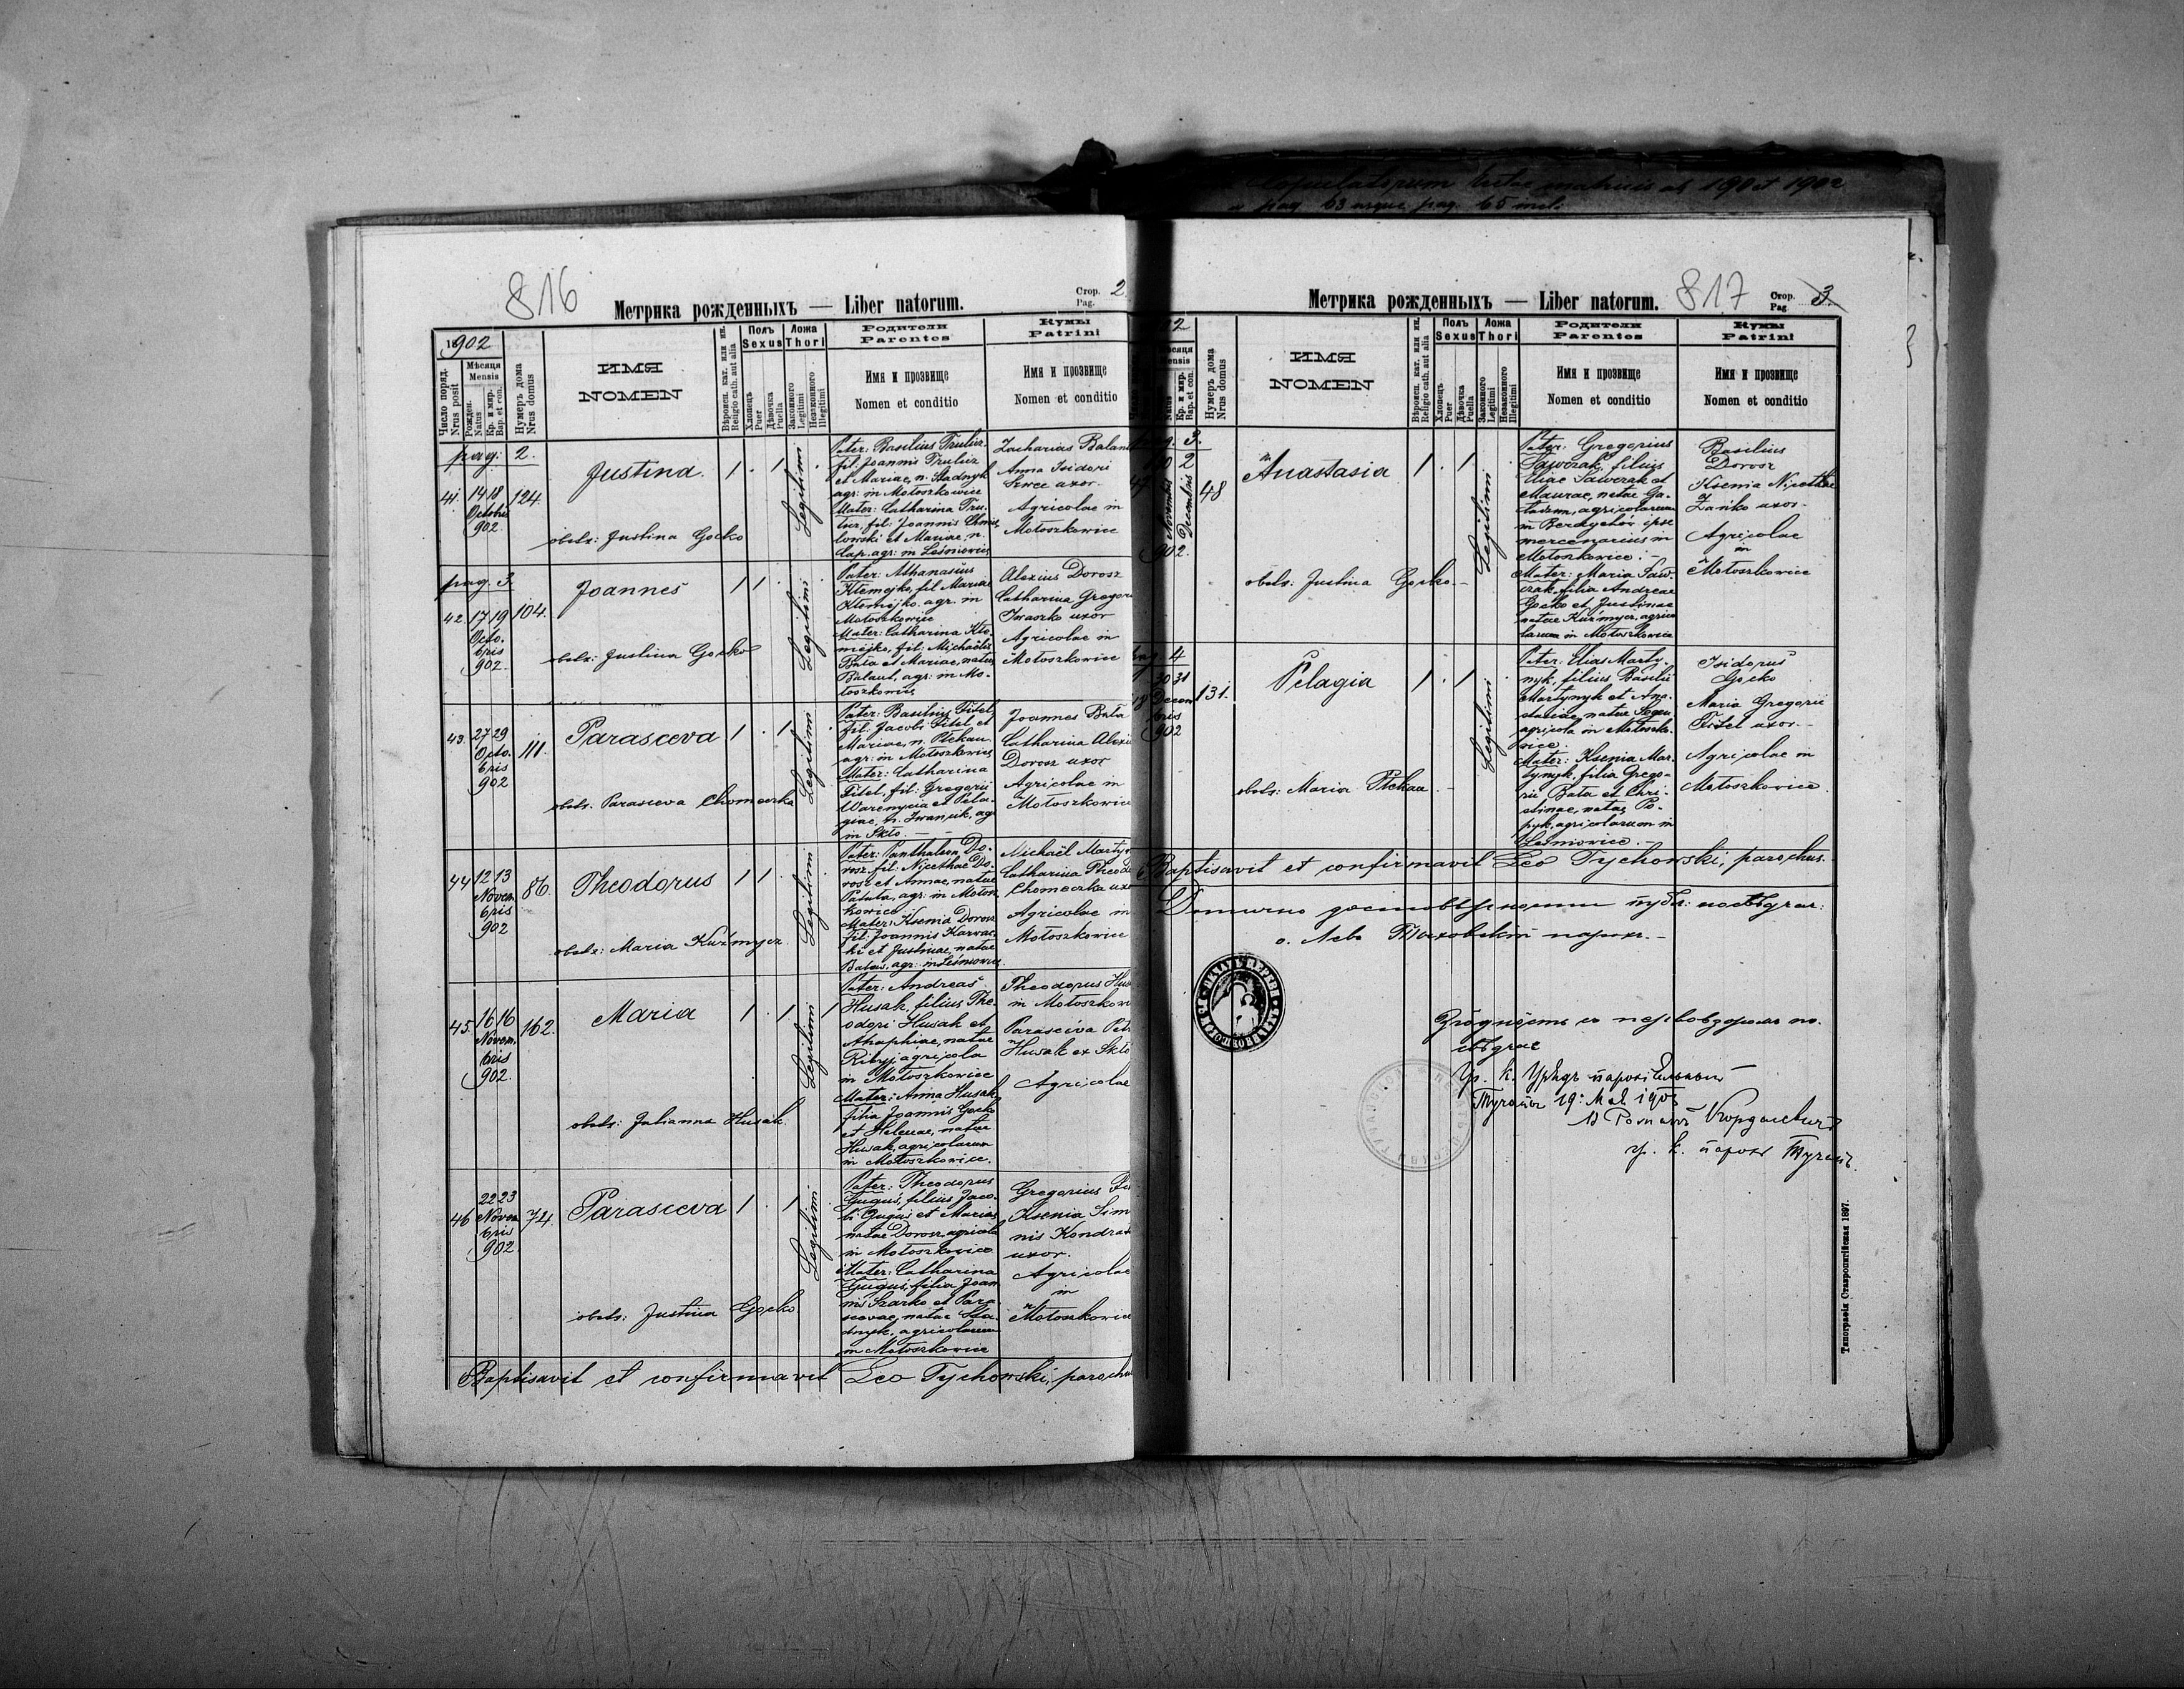 Copulatorum
pag 63 usque pag. 65 incl.
816
Метрика рожденныхъ — Liber natorum.
Стор. 2
Pag.
1902
Число поряд.
Nrus posit
Мѣсяця
Mensis
Рожден.
Natus
Кр. и мир.
Bap. et con.
Нумеръ дома
Nrus domus
ИМЯ
NOMEN
Вѣроисп. кат. или ин.
Religio cath. aut alia
Полъ
Sexus
Хлопець
Puer
Дѣвочка
Puella
Ложа
Thori
Законного
Legitimi
Незаконного
Illegitimi
Родители
Parentes
Имя и прозвище
Nomen et conditio
Кумы
Patrini
Имя и прозвище
Nomen et conditio
pag: 2.
41. 14 18
Octobris
902.
124.
Justina.
obstr: Justina Gocko
1 . 1 .
Legitimi
Pater: Basilius Trulicz
fil. Joannis Trulicz
et Mariae, n. Stadnyk
agr. in Mołoszkowice
Mater: Catharina Tru-
licz, fil: Joannis
et Mariae, n.
Cap. agr: in Leśniowice
Zacharias Balant
Anna Isidori
Szwec uxor.
Agricolae in
Mołoszkowice
pag. 3.
42. 17 19
Octo-
bris
902.
104.
Joannes
obstr: Justina Gocko
1 1 .
Legitimi
Pater: Athanasius
Kłemejko, fil Mariae
Kłemejko agr. in
Mołoszkowice
Mater: Catharina Kłe-
mejko, fil: Michaëlis
Bała et Mariae, natae
Balaut, agr: in Mo-
łoszkowice
Alexius Dorosz
Catharina Gregorii
Iwaszko uxor
Agricolae in
Mołoszkowice
43. 27 29
Octo-
bris
902
111.
Parasceva
obstr. Parasceva Chomeczka
1 . 1 .
Legitimi
Pater: Basilius Fitel,
fil: Jacobi Fitel et
Mariae, n. Ptckau
agr: in Mołoszkowice
Mater: Catharina
Fitel, fil: Gregorii
Warenycia et Pela-
giae, n. Iwaniuk, agr
in Skło. —
Joannes Bała
Catharina Alexii
Dorosz uxor
Agricolae in
Mołoszkowice
44 12 13
Novem
bris
902
86.
Theodorus
obstr: Maria Kuźmycz.
1 1
Legitimi
Pater: Panthaleon Do-
rosz, fil. Nicethae Do-
rosz et Annae, natae
agr: in Mołosz-
kowice
Mater: Ksenia Dorosz
fil. Joannis
et Justinae, natae
agr: in Leśniowice
Michaël Marty
Catharina Theod
Chomeczka ux
Agricolae in
Mołoszkowice
45. 16 16
Novem
bris
902.
162.
Maria
obstr: Julianna Husak.
1 . 1 . 1
Legitimi
Pater: Andreas
Husak, filius The-
odori Husak et
Ahaphiae, natae
agricola
in Mołoszkowice
Mater: Anna Husak,
filia Joannis Gocko
et Helenae, natae
Husak, agricolarum
in Mołoszkowice.
Theodorus Hus
in Mołoszkow
Parasceva Pet
Husak ex Skło
Agricolae
46 22 23
Novem
bris
902.
74.
Parasceva
obstr: Justina Gocko
1 . 1 .
Legitimi
Pater: Theodorus
Guguś, filius Jaco-
bi Guguś et Mariae,
natae Dorosz agricola
in Mołoszkowice
Mater: Catharina
Guguś, filia Joan
nis Szarko et Para
scevae, natae Sta-
dnyk, agricolarum
in Mołoszkowice
Gregorius
Ksenia Sim
nis Kondrat
uxor.
Agricolae
in
Mołoszkowice
Baptisavit et confirmavit Leo Tychowski, paroch
Метрика рожденныхъ — Liber natorum.
817
Стор. 3
Pag.
Нумеръ дома
Nrus domus
ИМЯ
NOMEN
Вѣроисп. кат. или ин.
Religio cath. aut alia
Полъ
Sexus
Хлопець
Puer
Дѣвочка
Puella
Ложа
Thori
Законного
Legitimi
Незаконного
Illegitimi
Родители
Parentes
Имя и прозвище
Nomen et conditio
Кумы
Patrini
Имя и прозвище
Nomen et conditio
3.
30 2
47
Novembris
Decembris
902.
48
Anastasia
obstr: Justina Gocko. —
1 . 1 .
Legitimi
Pater: Gregorius
Sawczak, filius
Eliae Sawczak et
Maurae, natae Ga-
agricolarum
in Berdychów ipse
mercenarius in
Mołoszkowice. —
Mater: Maria Saw-
czak, filia Andreae
Gocko et Justinae
natae Kuźmycz, agrico
larum in Mołoszkowice
Basilius
Dorosz
Ksenia Nicethae
Zańko uxor.
Agricolae
in
Mołoszkowice
pag. 4
30 31
Decem
bris
902
131.
Pelagia
obstr: Maria Ptckau. —
1 . 1 .
Legitimi
Pater: Elias Marty-
nyk, filius Basilii
Martynyk et Ana-
stasiae, natae
agricola in Mołoszko-
wice.
Mater: Ksenia Mar-
tynyk, filia Grego-
rii Bała et Chri-
stinae, natae Po-
pyk, agricolarum in
Leśniowice. —
Isidorus
Gocko
Maria Gregorii
Fitel uxor. —
Agricolae in
Mołoszkowice.
Baptisavit et confirmavit Leo Tychowski, parochus.
о. Левъ Тиховскій парохъ. —
Гр. к. Урядъ парохіяльный
19. Мая 1903
гр. к. парохъ
Типографія Ставропигійская 1897.